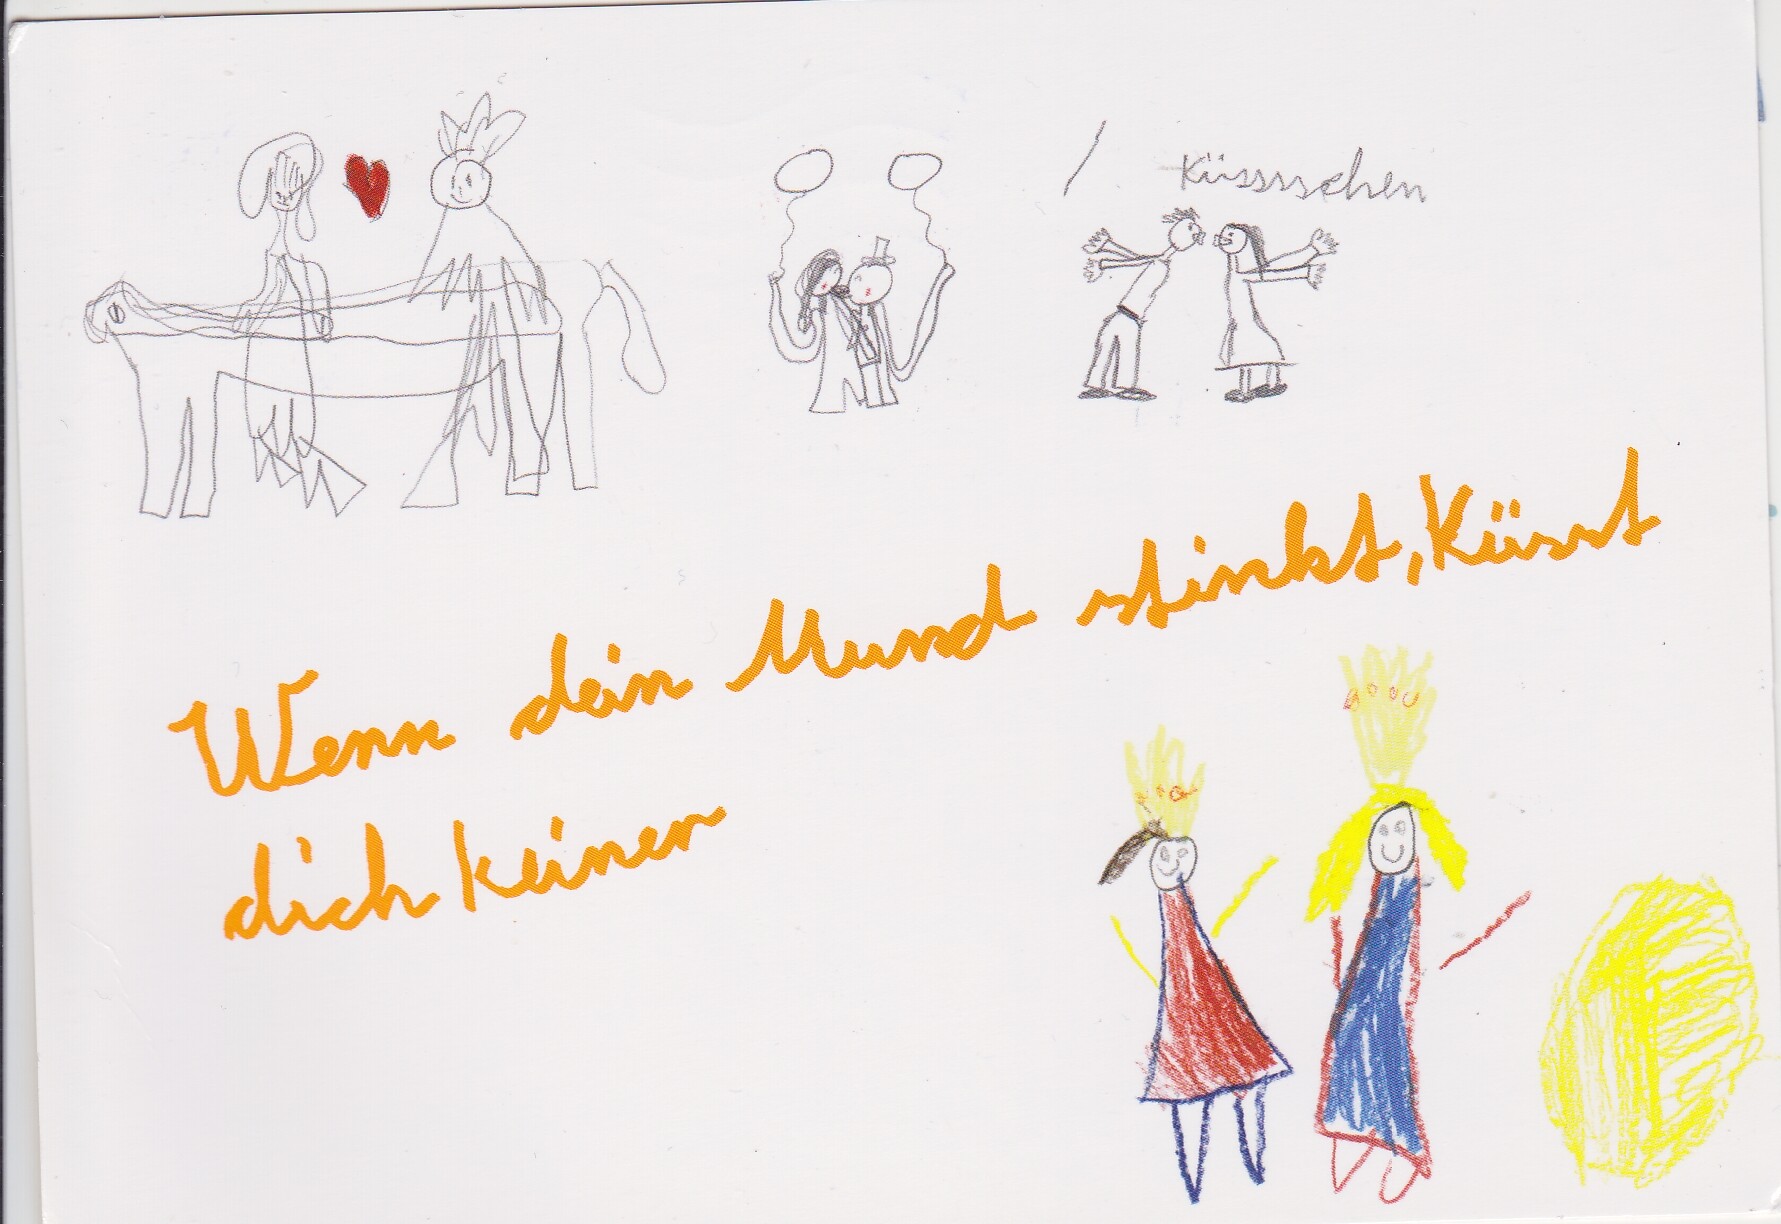 Küsssschen
Wenn dein Mund stinkt, Küsst
dich keiner